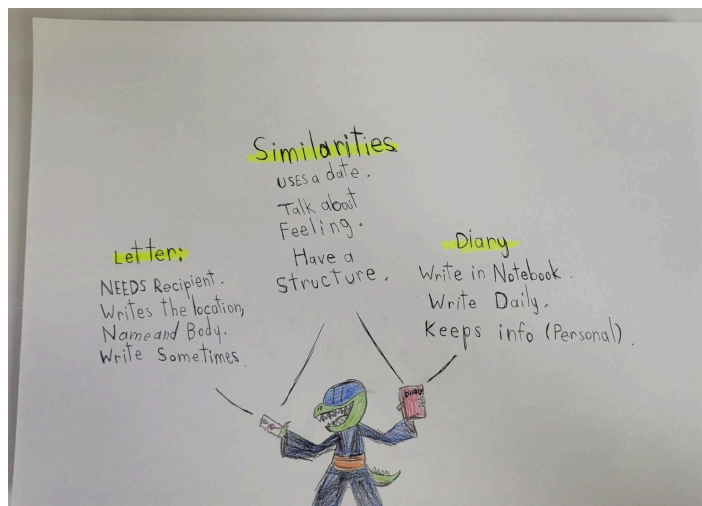 Similarities
USES a date.
Talk about
Feeling.
Have a
Structure.
Letter:
NEEDS Recipient.
Writes The location,
Name and Body.
Write Sometimes
Diary
Write in Notebook.
Write Daily.
Keeps info (Personal).
DIARY